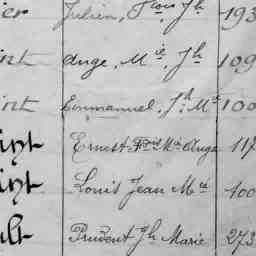 ier Julien, Fois Jh 193
int Ange, Mie, Jh 109
int Emmanuel, Jh Me 100
int Ernest Fois Mie Ange 117
int Louis Jean Me 100
ult Prudent Jh Marie 273